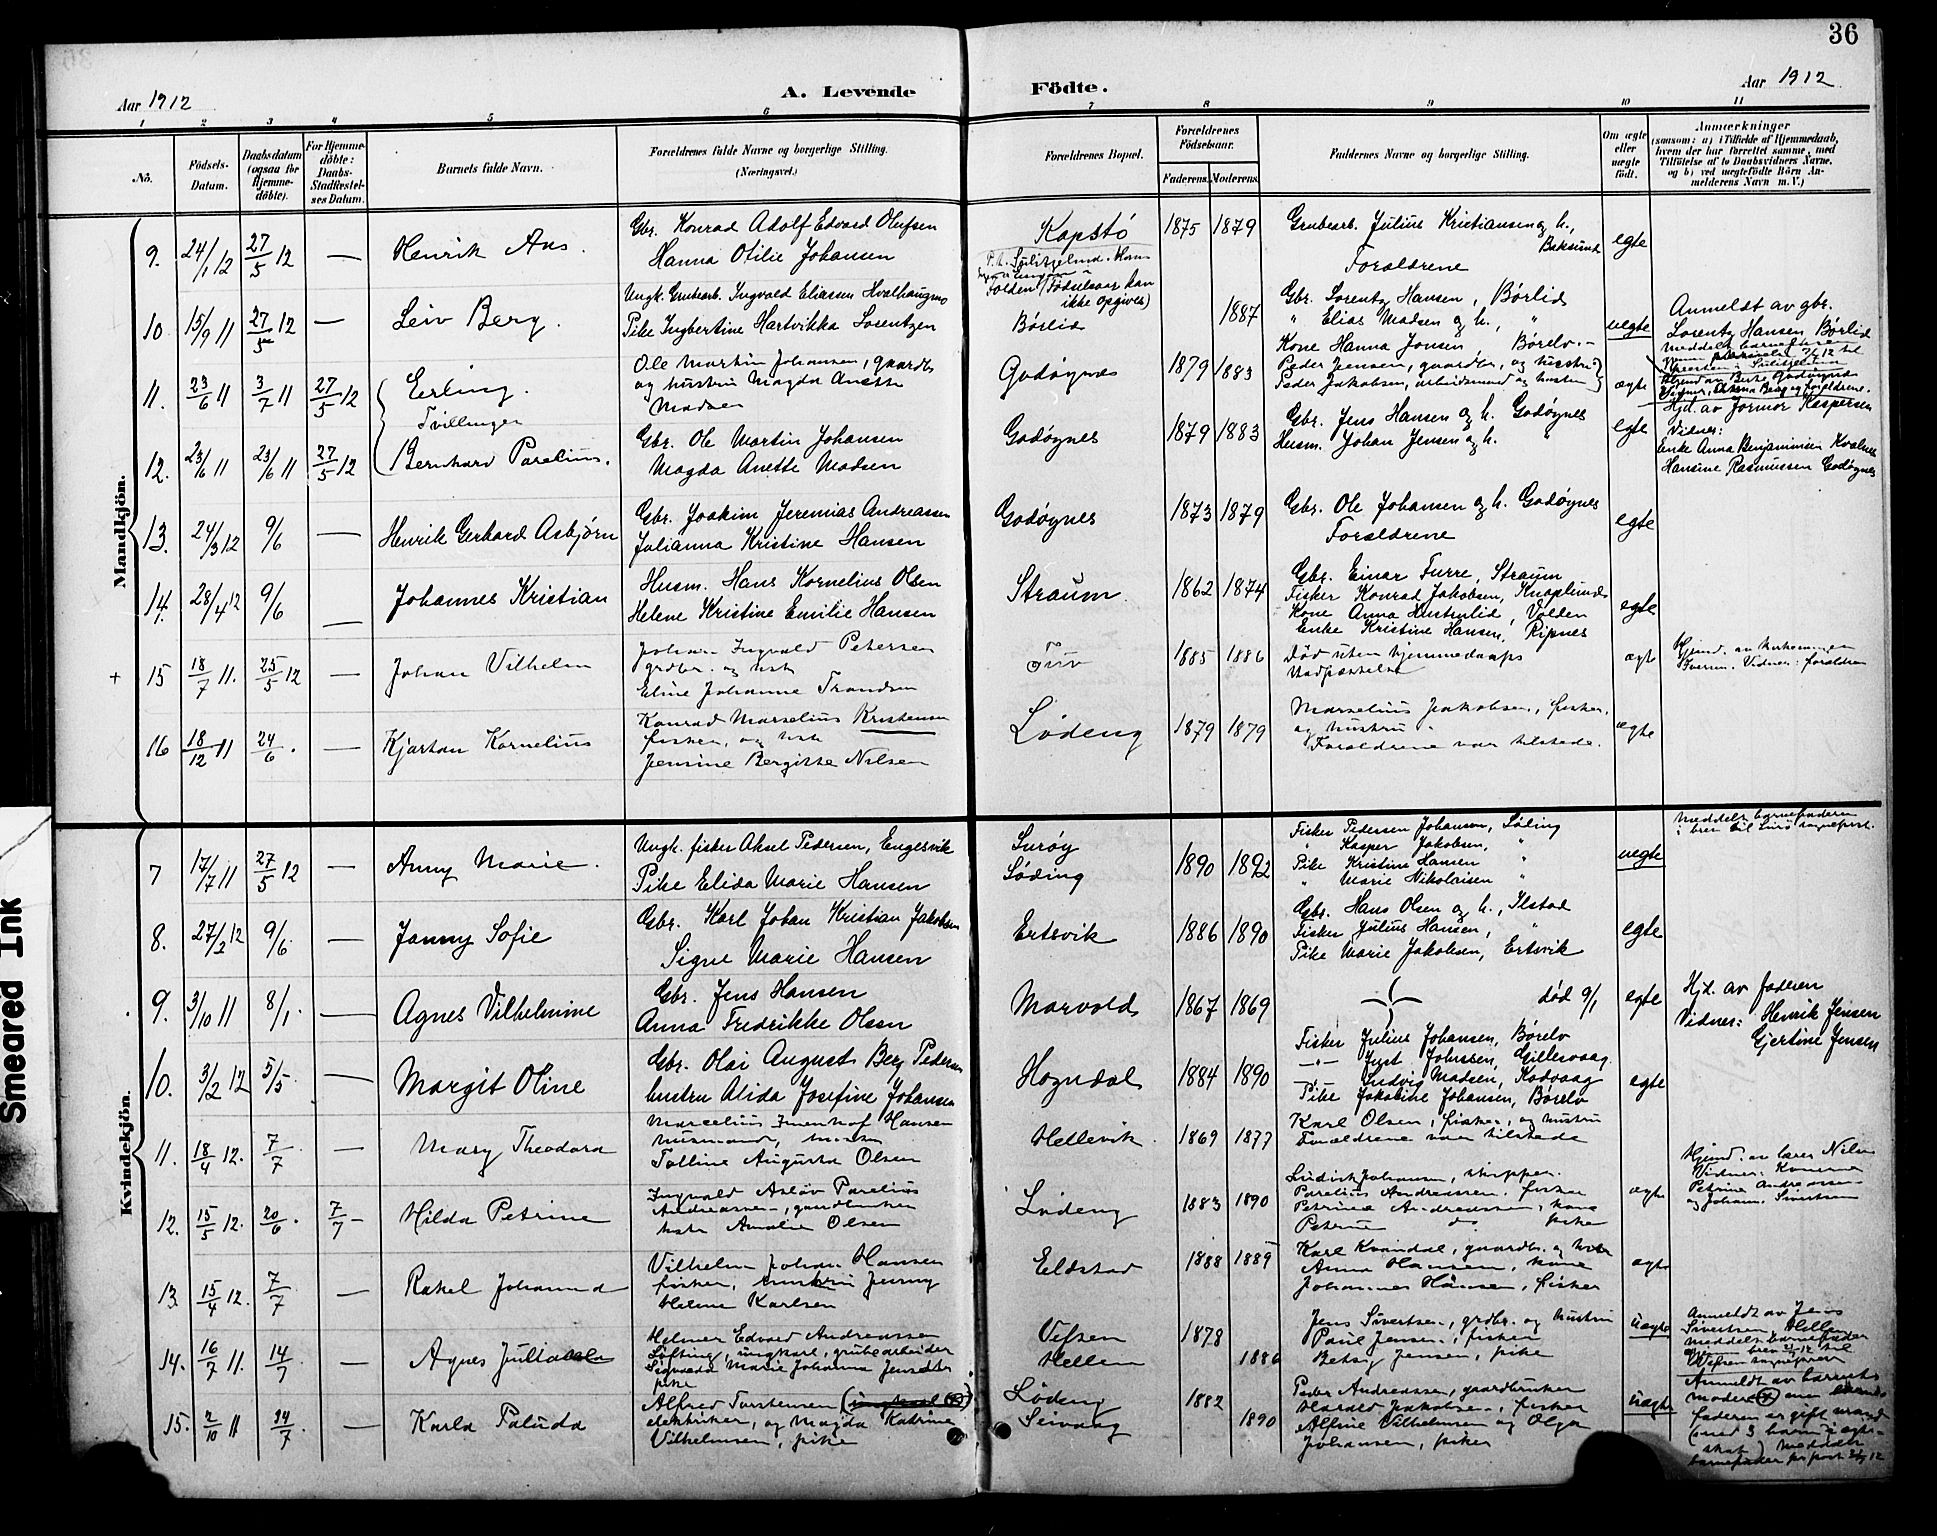 36
Aar 1912
A. Levende
Födte.
Aar 1912
1 2 3 4 5 6 7 8 9 10 11
No.
Födsels-Datum.
Daabsdatum (ogsaa for Hjemme-döbte).
For Hjemme-döbte: Daabs-Stadfæstel-ses Datum.
Barnets fulde Navn.
Forældrenes fulde Navne og borgerlige Stilling.
(Næringsvei.)
Forældrenes Bopæl.
Forældrenes Födselsaar.
Faderens. Moderens.
Faddernes Navne og borgerlige Stilling.
Om ægte eller uægte födt.
Anmærkninger
(saasom: a) i Tilfælde af Hjemmedaab, hvem der har forrettet samme, med Tilföielse af to Daabsvidners Navne, og b) ved uægtefödte Börn An-melderens Navn m. V.)
Mandkjön.
9. 24/1 12 27/5 12 — Henrik Ans.
Gbr. Konrad Adolf Edvard Olufsen
Hanna Otilie Johansen
Kapstö 1875 1879
Grubearb. Julius Kristiansen og h.,
Baksund
Forældrene
egte
10. 15/9 11 27/5 12 — Leiv Berg.
Ungk. Grubearb. Ingvald Eliassen Hvalhaugmo
Pike Ingbertine Hartvikka Lorentzen
Folden (Födselsaar kan
ikke opgives)
Börlid 1887
Gbr. Lorentz Hansen, Börlid
" Elias Madsen og h., "
Kone Hanna Jonsen Börelv. -
uegte
Anmeldt av gbr.
Lorentz Hansen Börlid
11. 23/6 11 3/7 11 27/5 12 Erling.
Tvillinger
Ole Martin Johansen, gaardb.
og hustru Magda Anette
Madsen
Godöynes 1879 1883
Peder Jensen, gaardbr., og hustru
Peder Jakobsen, arbeidsmand og hustru
ægte
12. 23/6 11 23/6 11 27/5 12 Bernhard Parelius.
Gbr. Ole Martin Johansen
Magda Anette Madsen
Godöynes 1879 1883
Gbr. Jens Hansen og h. Godöynes
Husm. Johan Jensen og h. "
egte
Hjd. av Jormor Kaspersen
Vidner:
Enke Anna Benjaminsen Kvalnes
Hansine Rasmussen Godöynes
13. 24/3 12 9/6 — Henrik Gerhard Asbjörn
Gbr. Joakim Jeremias Andreassen
Julianna Kristine Hansen
Godöynes 1873 1879
Gbr. Ole Johansen og h. Godöynes
Forældrene
egte
14. 28/4 12 9/6 — Johannes Kristian
Husm. Hans Kornelius Olsen
Helene Kristine Emilie Hansen
Straum. 1862 1874
Gbr. Einar Furre, Straum
Fisker Konrad Jakobsen, Knaplund
Kone Anna Hustrulid, Valden
Enke Kristine Hansen, Ripnes
egte
+ 15 18/7 11. 25/5 12 — Johan Vilhelm
Johan Ingvald Petersen
grdbr. og hst
Eline Johanne Trondsen
Tuv 1885 1886
Död uten hjemmedaaps
stadfæstelse
ægte
16 18/12 11 24/6. — Kjartan Kornelius
Konrad Marselius Kristensen
fisker, og hst
Jensine Bergitte Nilsen
Lödeng 1879 1879
Marselius Jakobsen, fisker,
og hustru
Forældrene var tilstede.
ægte
Kvindekjön.
7 17/7 11 27/5 12 — Anny Marie.
Ungk. fisker Aksel Pedersen, Engesvik
Pike Elida Marie Hansen
Suröy
Söding 1890 1892
Fisker Pedersen Johansen, Söding
" Kasper Jakobsen, "
Pike Kristine Hansen "
" Marie Nikolaisen "
uegte
Meddelt barnefaderen
i brev til Surö sogneprest.
8. 27/2 12 9/6. — Janny Sofie
Gbr. Karl Johan Kristian Jakobsen
Signe Marie Hansen
Ertsvik 1886 1890
Gbr. Hans Olsen og h., Ilstad
Fisker Julius Hansen, "
Pike Marie Jakobsen, Ertsvik
egte
9. 3/10 11 8/1. — Agnes Vilhelmine
Gbr. Jens Hansen
Anna Fredrikke Olsen
Marvold 1867 1869
död 9/1
egte
Hjd. av faderen
Vidner: Henrik Jensen
Gjertine Jensen
10. 3/2 12 5/5. — Margit Oline
Gbr. Olai August Berg Pedersen
hustru Alida Josefine Johansen
Hogndal 1884 1890
Fisker Julius Johansen, Börelv
—"— Just Johnsen, Gillesvaag.
—"— Ludvig Madsen, Kodvaag
Pike Jakobine Johansen, Börelv
egte
11. 18/4 12. 7/7. — Mary Theodora
Marcelius Imenhof Hansen
husmand, hustru
Tolline Augusta Olsen
Hellevik. 1869 1877
Karl Olsen, fisker, og hustru
Forældrene var tilstede
12. 15/5 12. 20/6. 7/7 — Hilda Petrine
Ingvald Aslöv Parelius
Andreassen, gaardbruker
hst Amalie Olsen
Lödeng 1883 1890
Ludvik Johansen, skipper.
Parelius Andreassen, fisker
Petrine Andreassen, kone
Petrine do pike
ægte
Hjemd. av lærer Nilsen
Vidner: Konerne
Petrine Andreassen
og Johanna Sivertsen
13. 15/4 12. 7/7. — Rakel Johanna
Vilhelm Johan Hansen
fisker, hustru Jenny
Helene Karlsen
Eldstad 1888 1889
Karl Kvandal, gaardbr. og hst
Anna Hansen, kone
Johannes Hansen, fisker
ægte
14. 16/7 11. 14/7 — Agnes Julia
Helmer Edvard Andreassen
Löfting, ungkarl, grubearbeider
Sigvarda Marie Johanna Jensdtr
pike
Vefsen
Hellen 1878 1886
Jens Sivertsen, grdbr. og hustru
Paul Jensen, fisker
Betsy Jensen, pike
uægte
Anmeldt av Jens
Sivertsen, Hellen
Meddelt barnefader
Vefsen sogneprest
15. 2/10 11 14/7 — Karla Paluda
Alfred Torstensen
elektriker, og Magda Katrine
Vilhelmsen, pike
Lödeng
Seivaag 1882 1890
Peder Andreassen, gaardbruker
Harald Jakobsen, fisker
Alfine Vilhelmsen og Olga
Johansen, piker
uægte
Anmeldt av barnets
moder
faderen er gift mand
(med 3 barn i egte-
skab) Meddelt
barnefader pr post
Smeared Ink